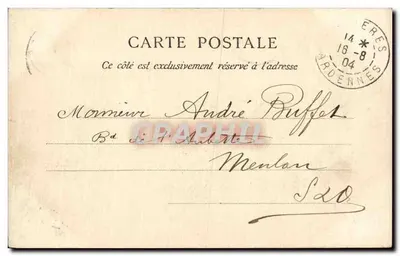 CARTE POSTALE
Ce côté est exclusivement réservé à l'adresse
ERES
14 *
16-8
04
ARDENNES
Monsieur André Buffet
Bd de
Meulan
S&O